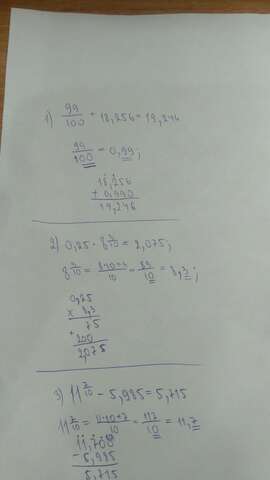 1) 99/100 + 18,256 = 19,246
99/100 = 0,99;
18,256
+ 0,990
19,246
2) 0,25 · 8 3/10 = 2,075;
8 3/10 = 8·10+3/10 = 83/10 = 8,3;
0,25
× 8,3
75
+
200
2,075
3) 11 7/10 - 5,985 = 5,715
11 7/10 = 11·10+7/10 = 117/10 = 11,7
11,700
- 5,985
5,715